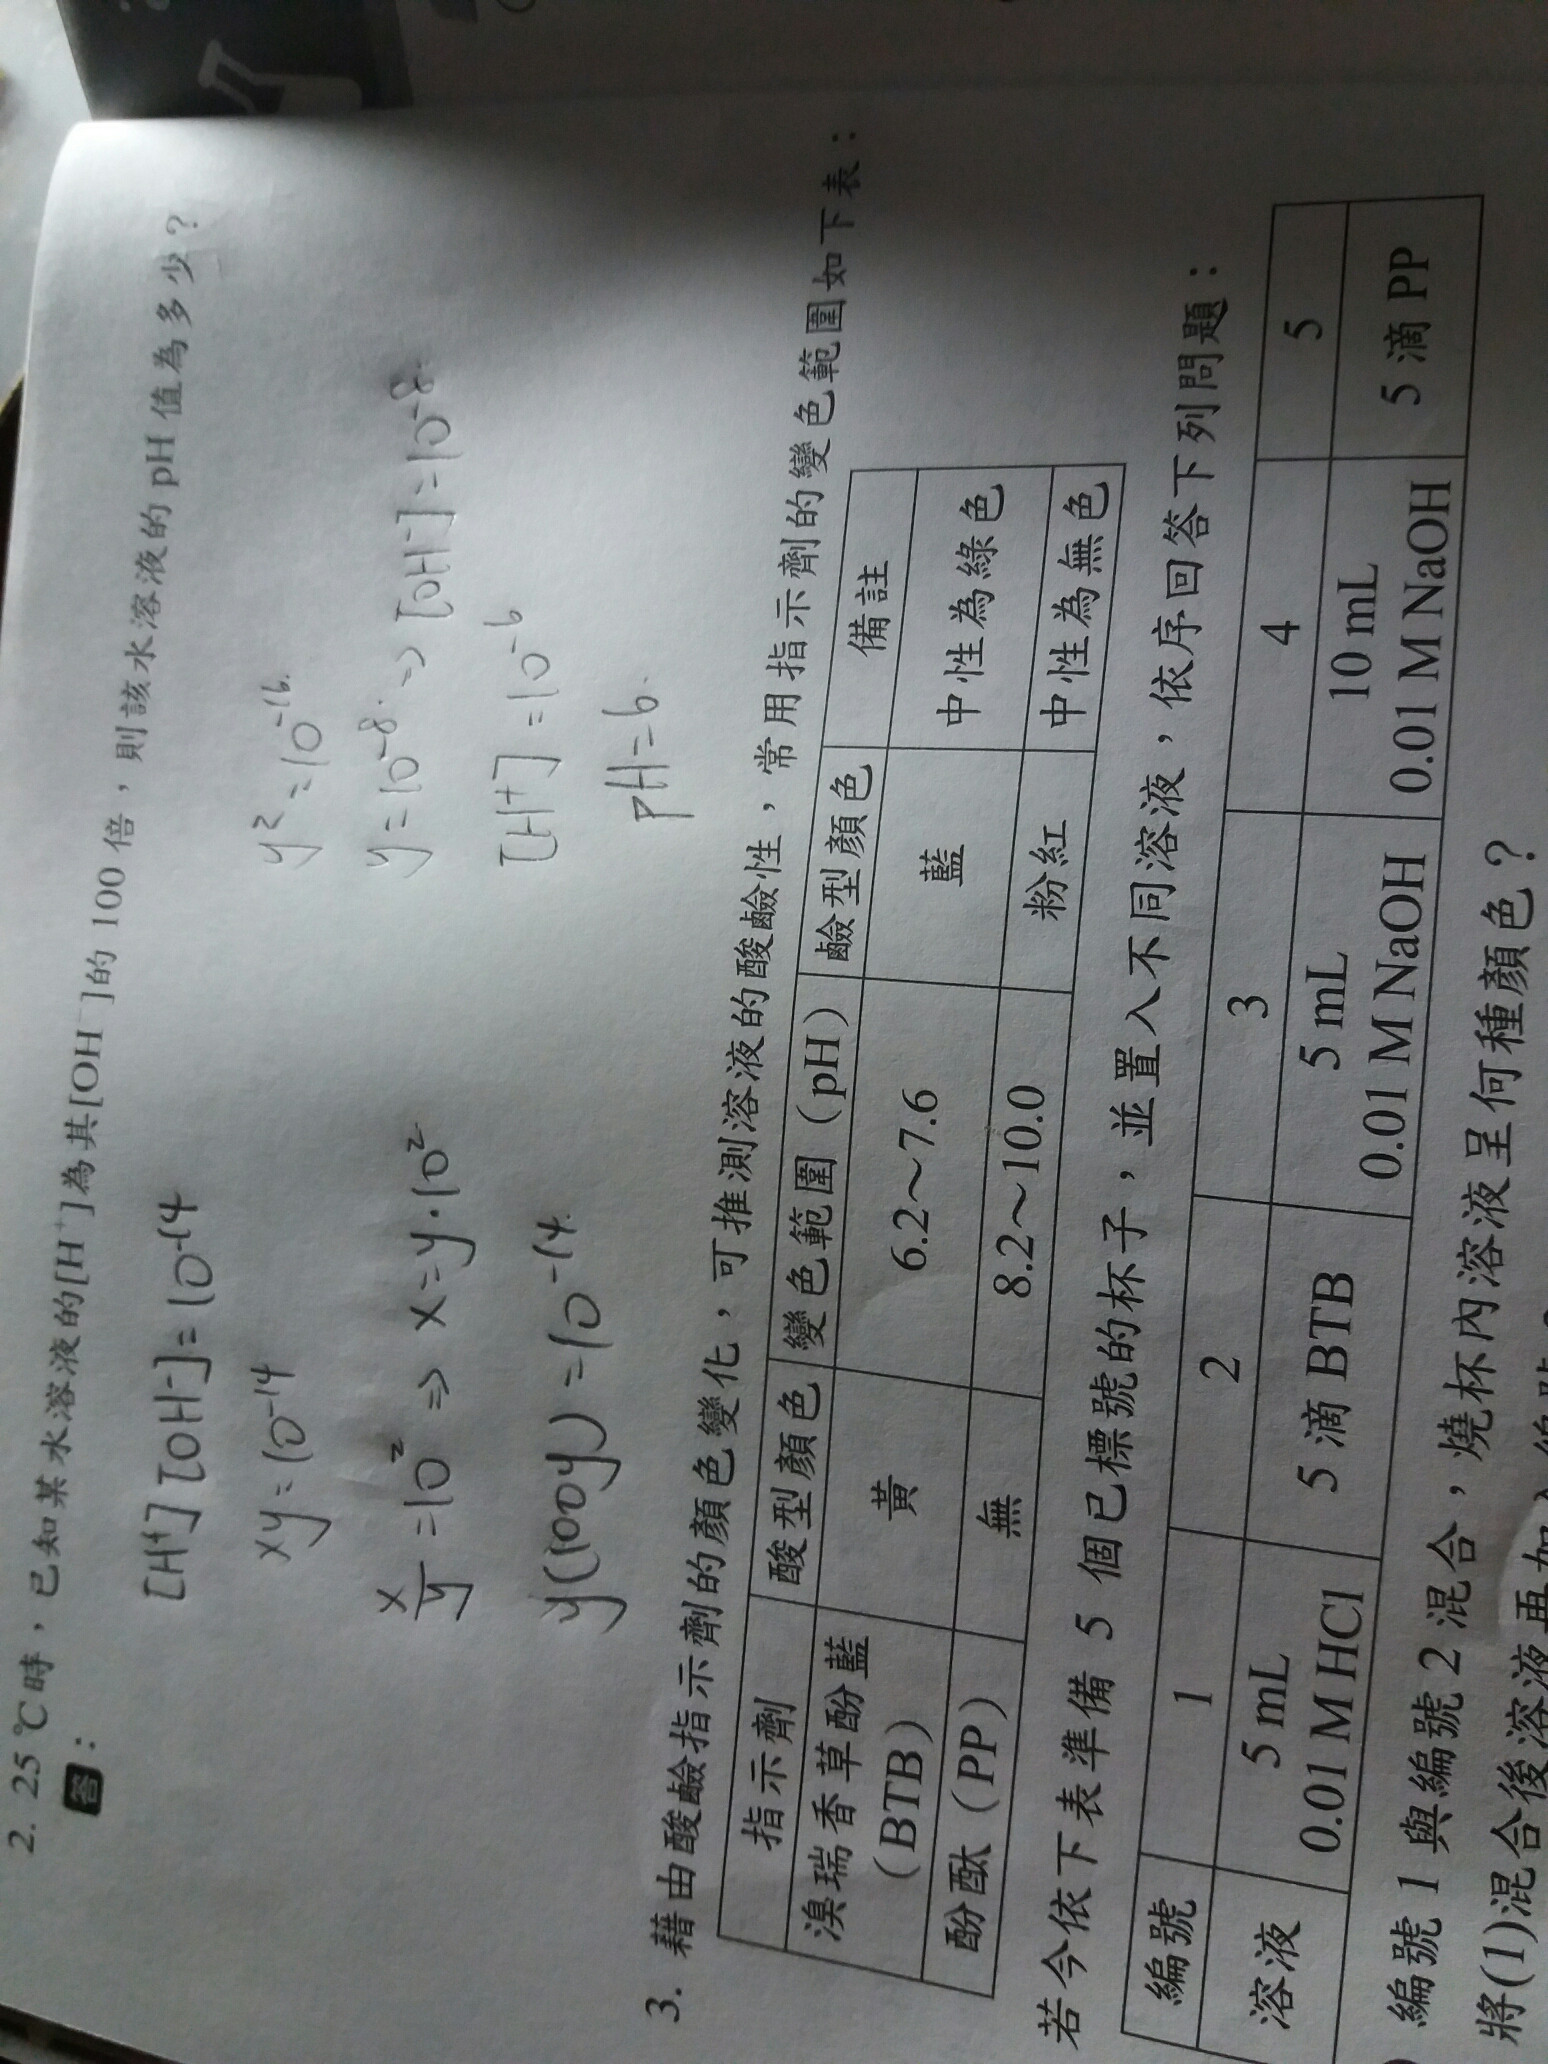 2. 25 ℃時，已知某水溶液的[H⁺]為其[OH⁻]的 100 倍，則該水溶液的 pH 值為多少？
答：
[H⁺][OH⁻]=10⁻¹⁴
xy=10⁻¹⁴
x/y=10² ⇒ x=y·10²
y(100y)=10⁻¹⁴.
y²=10⁻¹⁶.
y=10⁻⁸. ⇒ [OH⁻]=10⁻⁸.
[H⁺]=10⁻⁶
pH=6.
3. 藉由酸鹼指示劑的顏色變化，可推測溶液的酸鹼性，常用指示劑的變色範圍如下表：
指示劑 酸型顏色 變色範圍（pH） 鹼型顏色 備註
溴瑞香草酚藍
（BTB） 黃 6.2～7.6 藍 中性為綠色
酚酞（PP） 無 8.2～10.0 粉紅 中性為無色
若今依下表準備 5 個已標號的杯子，並置入不同溶液，依序回答下列問題：
編號 1 2 3 4 5
溶液 5 mL 5 滴 BTB 5 mL 10 mL 5 滴 PP
0.01 M HCl 0.01 M NaOH 0.01 M NaOH
編號 1 與編號 2 混合，燒杯內溶液呈何種顏色？
將(1)混合後溶液再加入